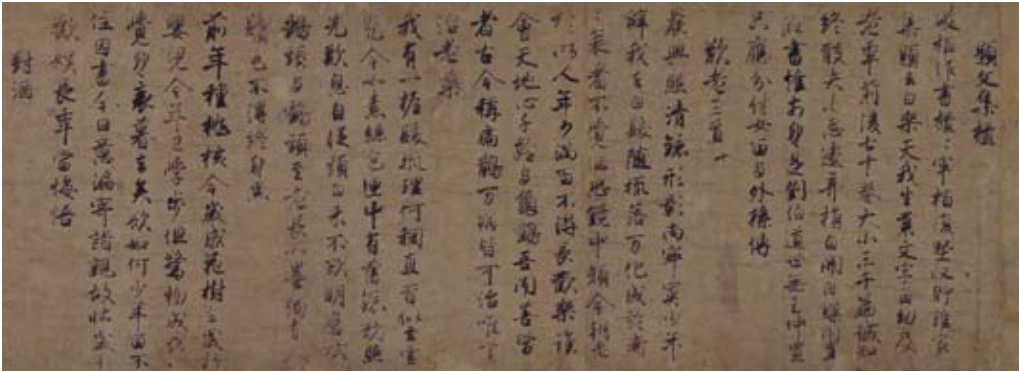 題文集櫃
破柏作書櫃々牢柏復堅收貯誰家
集題云白樂天我生業文字自幼及
老年前後七十卷大小三千篇誠知
終散失未忍遽弃捐自開自鎖閉置
在書帷前身是鄧伯道世無王仲宣
只應分付女留与外孫傳
歎老三首
晨興照清鏡形影兩寂寞少年
辭我去白髮隨梳落万化成於漸
々衰看不覺但恐鏡中顏今朝老
於昨人年少滿百不得長歡樂誰
會天地心千齡与龜鶴吾聞善醫
者古今稱扁鵲万病皆可治唯無
治老藥
我有一握髮梳理何稠直昔似玄雲
光今如素絲色匣中有舊鏡欲照
先歎息自從頭白来不欲明磨拭
鵶頭与鶴頸至老長如墨獨有人
鬢毛不得終身黑
前年種桃核今歲成花樹去歲新
嬰兒今年已學步但驚物成長不
覺身衰暮去矣欲如何少年留不
住因書今日意遍寄諸親故壯歲不
歡娛長年當悔悟
對酒